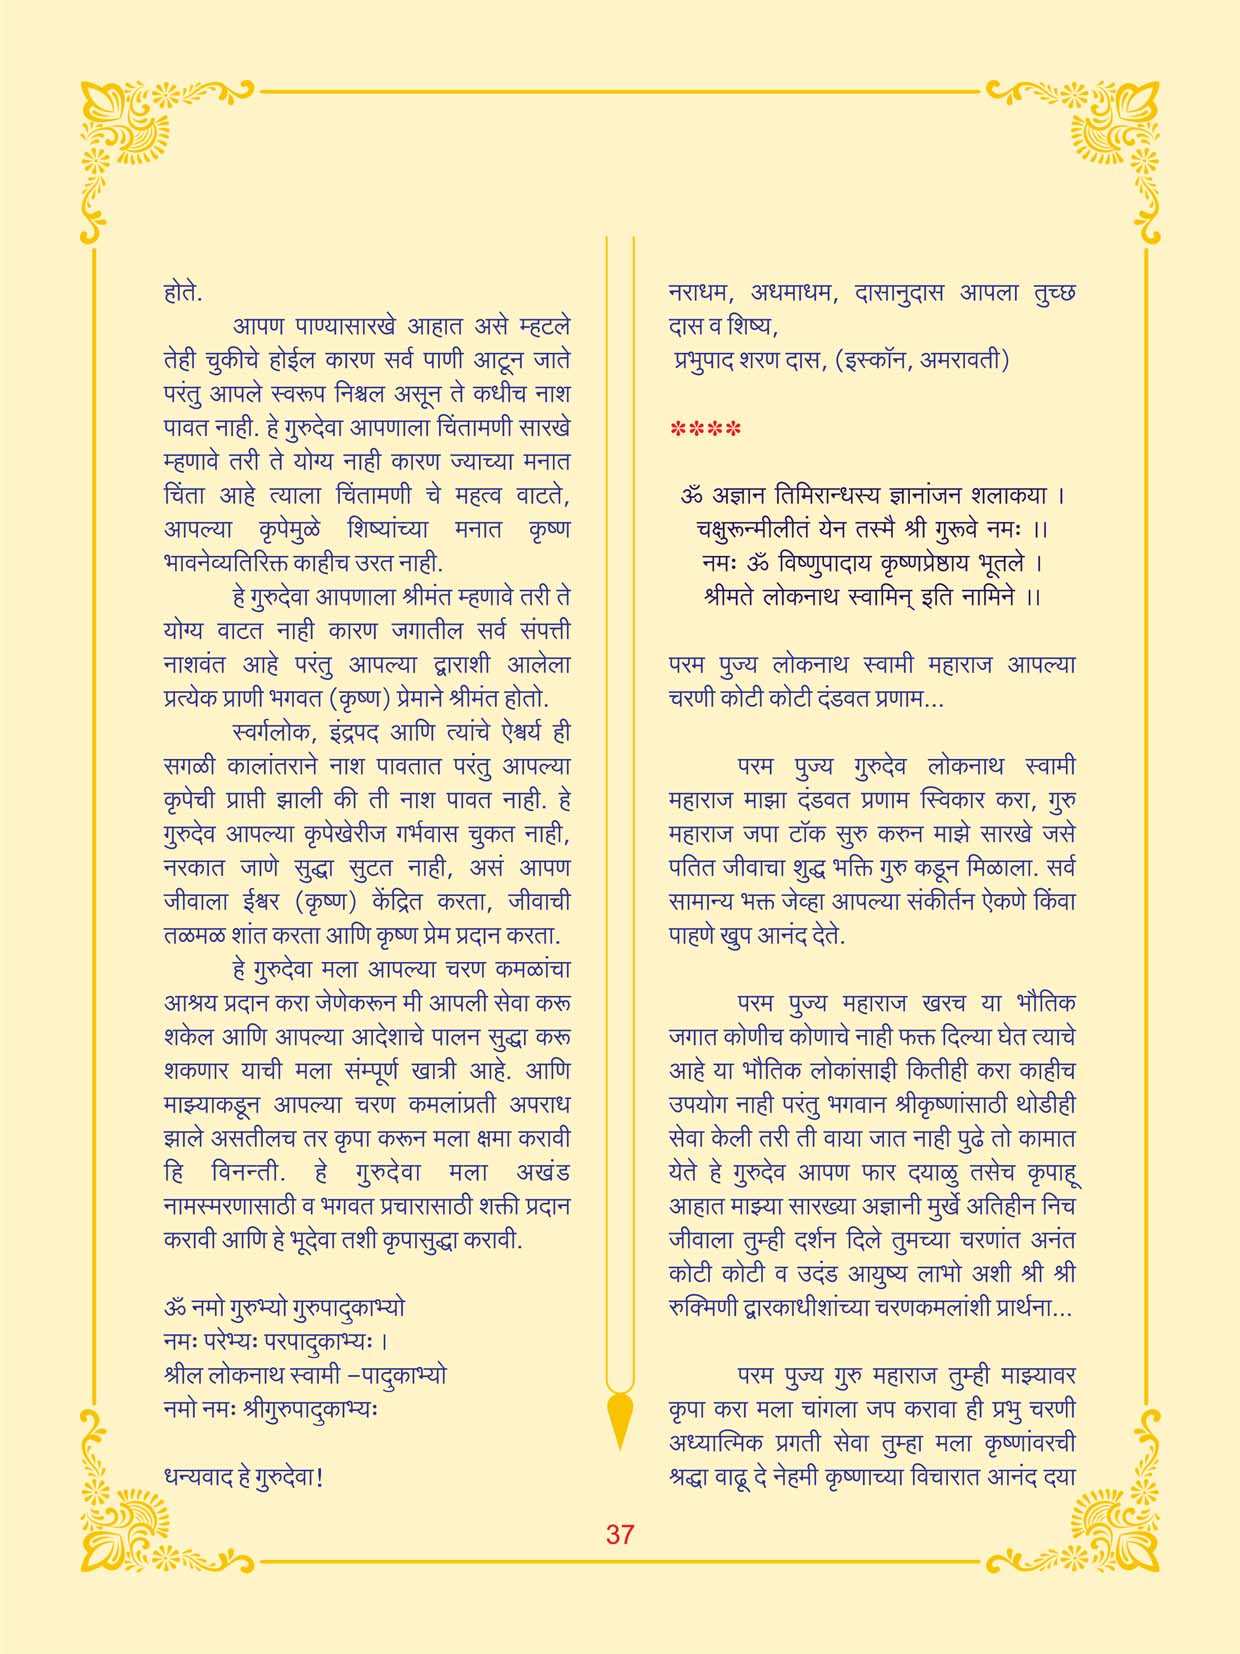 होते.
आपण पाण्यासारखे आहात असे म्हटले
तेही चुकीचे होईल कारण सर्व पाणी आटून जाते
परंतु आपले स्वरूप निश्चल असून ते कधीच नाश
पावत नाही. हे गुरुदेवा आपणाला चिंतामणी सारखे
म्हणावे तरी ते योग्य नाही कारण ज्याच्या मनात
चिंता आहे त्याला चिंतामणी चे महत्व वाटते,
आपल्या कृपेमुळे शिष्यांच्या मनात कृष्ण
भावनेव्यतिरिक्त काहीच उरत नाही.
हे गुरुदेवा आपणाला श्रीमंत म्हणावे तरी ते
योग्य वाटत नाही कारण जगातील सर्व संपत्ती
नाशवंत आहे परंतु आपल्या द्वाराशी आलेला
प्रत्येक प्राणी भगवत (कृष्ण) प्रेमाने श्रीमंत होतो.
स्वर्गलोक, इंद्रपद आणि त्यांचे ऐश्वर्य ही
सगळी कालांतराने नाश पावतात परंतु आपल्या
कृपेची प्राप्ती झाली की ती नाश पावत नाही. हे
गुरुदेव आपल्या कृपेखेरीज गर्भवास चुकत नाही,
नरकात जाणे सुद्धा सुटत नाही, असं आपण
जीवाला ईश्वर (कृष्ण) केंद्रित करता, जीवाची
तळमळ शांत करता आणि कृष्ण प्रेम प्रदान करता.
हे गुरुदेवा मला आपल्या चरण कमळांचा
आश्रय प्रदान करा जेणेकरून मी आपली सेवा करू
शकेल आणि आपल्या आदेशाचे पालन सुद्धा करू
शकणार याची मला संम्पूर्ण खात्री आहे. आणि
माझ्याकडून आपल्या चरण कमलांप्रती अपराध
झाले असतीलच तर कृपा करून मला क्षमा करावी
हि विनन्ती. हे गुरुदेवा मला अखंड
नामस्मरणासाठी व भगवत प्रचारासाठी शक्ती प्रदान
करावी आणि हे भूदेवा तशी कृपासुद्धा करावी.
ॐ नमो गुरुभ्यो गुरुपादुकाभ्यो
नमः परेभ्यः परपादुकाभ्यः ।
श्रील लोकनाथ स्वामी -पादुकाभ्यो
नमो नमः श्रीगुरुपादुकाभ्यः
धन्यवाद हे गुरुदेवा!
नराधम, अधमाधम, दासानुदास आपला तुच्छ
दास व शिष्य,
प्रभुपाद शरण दास, (इस्कॉन, अमरावती)
****
ॐ अज्ञान तिमिरान्धस्य ज्ञानांजन शलाकया ।
चक्षुरून्मीलीतं येन तस्मै श्री गुरूवे नमः ।।
नमः ॐ विष्णुपादाय कृष्णप्रेष्ठाय भूतले ।
श्रीमते लोकनाथ स्वामिन् इति नामिने ।।
परम पुज्य लोकनाथ स्वामी महाराज आपल्या
चरणी कोटी कोटी दंडवत प्रणाम...
परम पुज्य गुरुदेव लोकनाथ स्वामी
महाराज माझा दंडवत प्रणाम स्विकार करा, गुरु
महाराज जपा टॉक सुरु करुन माझे सारखे जसे
पतित जीवाचा शुद्ध भक्ति गुरु कडून मिळाला. सर्व
सामान्य भक्त जेव्हा आपल्या संकीर्तन ऐकणे किंवा
पाहणे खुप आनंद देते.
परम पुज्य महाराज खरच या भौतिक
जगात कोणीच कोणाचे नाही फक्त दिल्या घेत त्याचे
आहे या भौतिक लोकांसाइी कितीही करा काहीच
उपयोग नाही परंतु भगवान श्रीकृष्णांसाठी थोडीही
सेवा केली तरी ती वाया जात नाही पुढे तो कामात
येते हे गुरुदेव आपण फार दयाळु तसेच कृपाहू
आहात माझ्या सारख्या अज्ञानी मुर्खे अतिहीन निच
जीवाला तुम्ही दर्शन दिले तुमच्या चरणांत अनंत
कोटी कोटी व उदंड आयुष्य लाभो अशी श्री श्री
रुक्मिणी द्वारकाधीशांच्या चरणकमलांशी प्रार्थना...
परम पुज्य गुरु महाराज तुम्ही माझ्यावर
कृपा करा मला चांगला जप करावा ही प्रभु चरणी
अध्यात्मिक प्रगती सेवा तुम्हा मला कृष्णांवरची
श्रद्धा वाढू दे नेहमी कृष्णाच्या विचारात आनंद दया
37